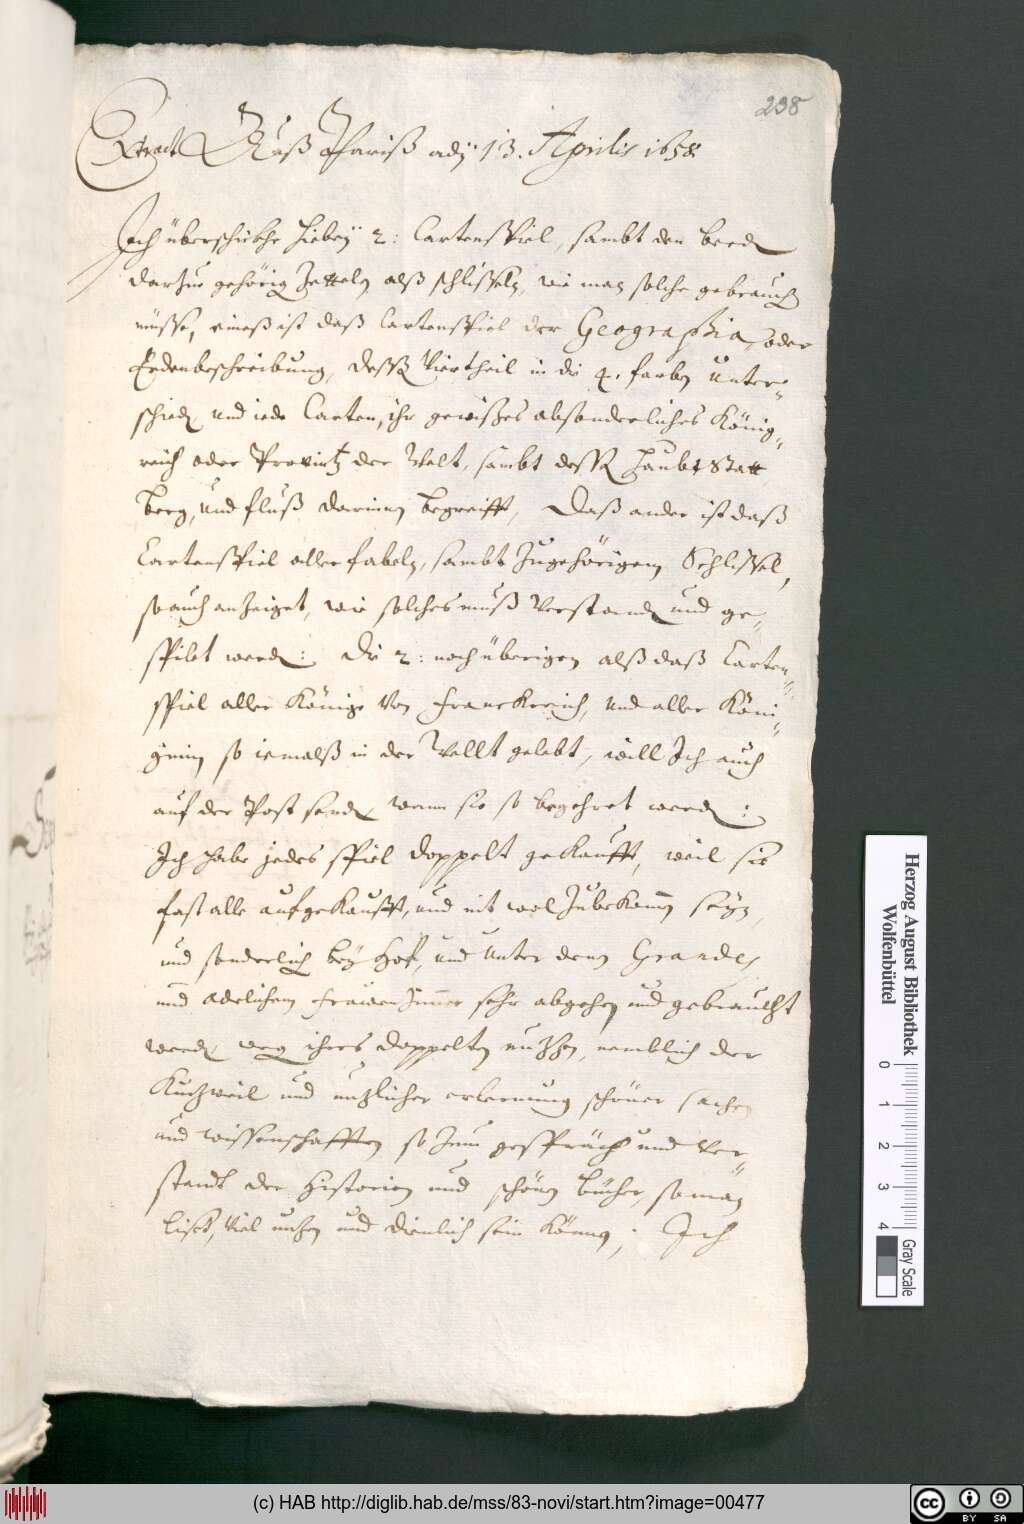 238
Extract Auß Pariß ady 13. Aprilis 1658.
Ich überschickhe hiebeÿ 2: Cartenspiel, sambt den beeden
darzue gehörig Zetteln alß schlisseln, wie man solche gebrauchen
müsse, eineß ist daß Cartenspiel der Geographia, oder
Erdenbeschreibung, dessen Viertheil in die 4. farben unter-
schieden und iede Carten, ihr gewisses absonderliches König-
reich oder Provintz der Welt, sambt dessen Haubt Statt
Berg, und fluß darinnen begreifft, Daß ander ist daß
Cartenspiel aller fabeln, sambt Zugehörigem Schlissel,
so auch anzeiget, wie solches muß verstanden und ge-
spilet werden: Die 2: noch überigen alß daß Carten-
spiel aller Könige von Franckreich, und aller Köni-
ginin so iemalß in der Wellt gelebt, will Ich auch
auf der Post senden wann sie so begehret werden:
Ich habe jedes spiel doppelt gekaufft, weil sie
fast alle aufgekaufft, und nit wol Zubekommen seyn,
und sonderlich beÿ Hof, und unter denen Grandes
und adelichem Frawenzimmer sehr abgehen und gebraucht
werden weg ihres doppelten nutzen, nemblich der
Kurtzweil und nutzlicher erlernung schöner sachen
und wissenschafften so Zum gespräch und ver-
standt der Historien und schönen bücher, so man
liset, viel nutzen und dienlich sein können; Ich
Herzog August Bibliothek
Wolfenbüttel
0 1 2 3 4
Gray Scale
(c) HAB http://diglib.hab.de/mss/83-novi/start.htm?image=00477
cc BY SA